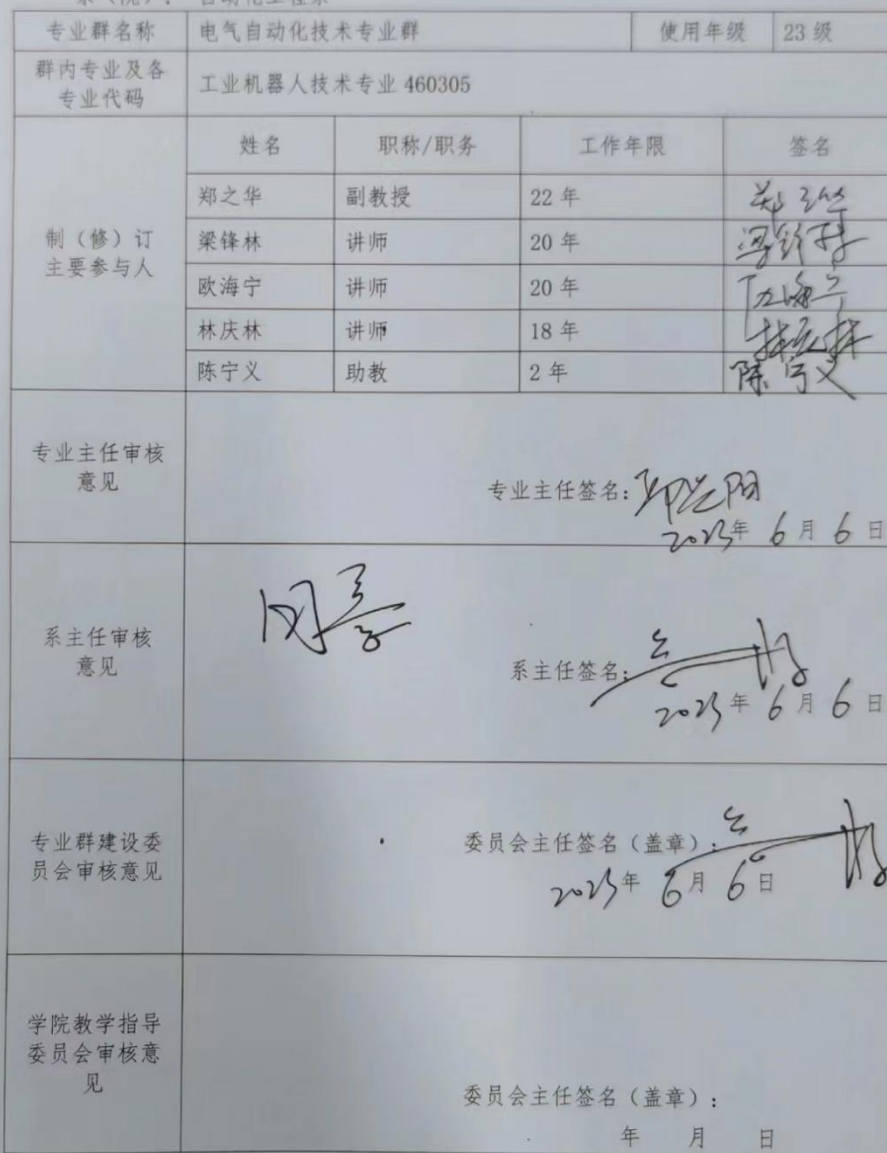 系（院）： 自动化工程系
专业群名称 电气自动化技术专业群 使用年级 23 级
群内专业及各
专业代码
工业机器人技术专业 460305
制（修）订
主要参与人
姓名 职称/职务 工作年限 签名
郑之华 副教授 22 年
梁锋林 讲师 20 年 梁锋林
欧海宁 讲师 20 年 欧海宁
林庆林 讲师 18 年 林庆林
陈宁义 助教 2 年 陈宁义
专业主任审核
意见
专业主任签名：
2023年 6 月 6 日
系主任审核
意见
同意
系主任签名：
2023年 6 月 6 日
专业群建设委
员会审核意见
委员会主任签名（盖章）：
2023年 6 月 6 日
学院教学指导
委员会审核意
见
委员会主任签名（盖章）：
年 月 日